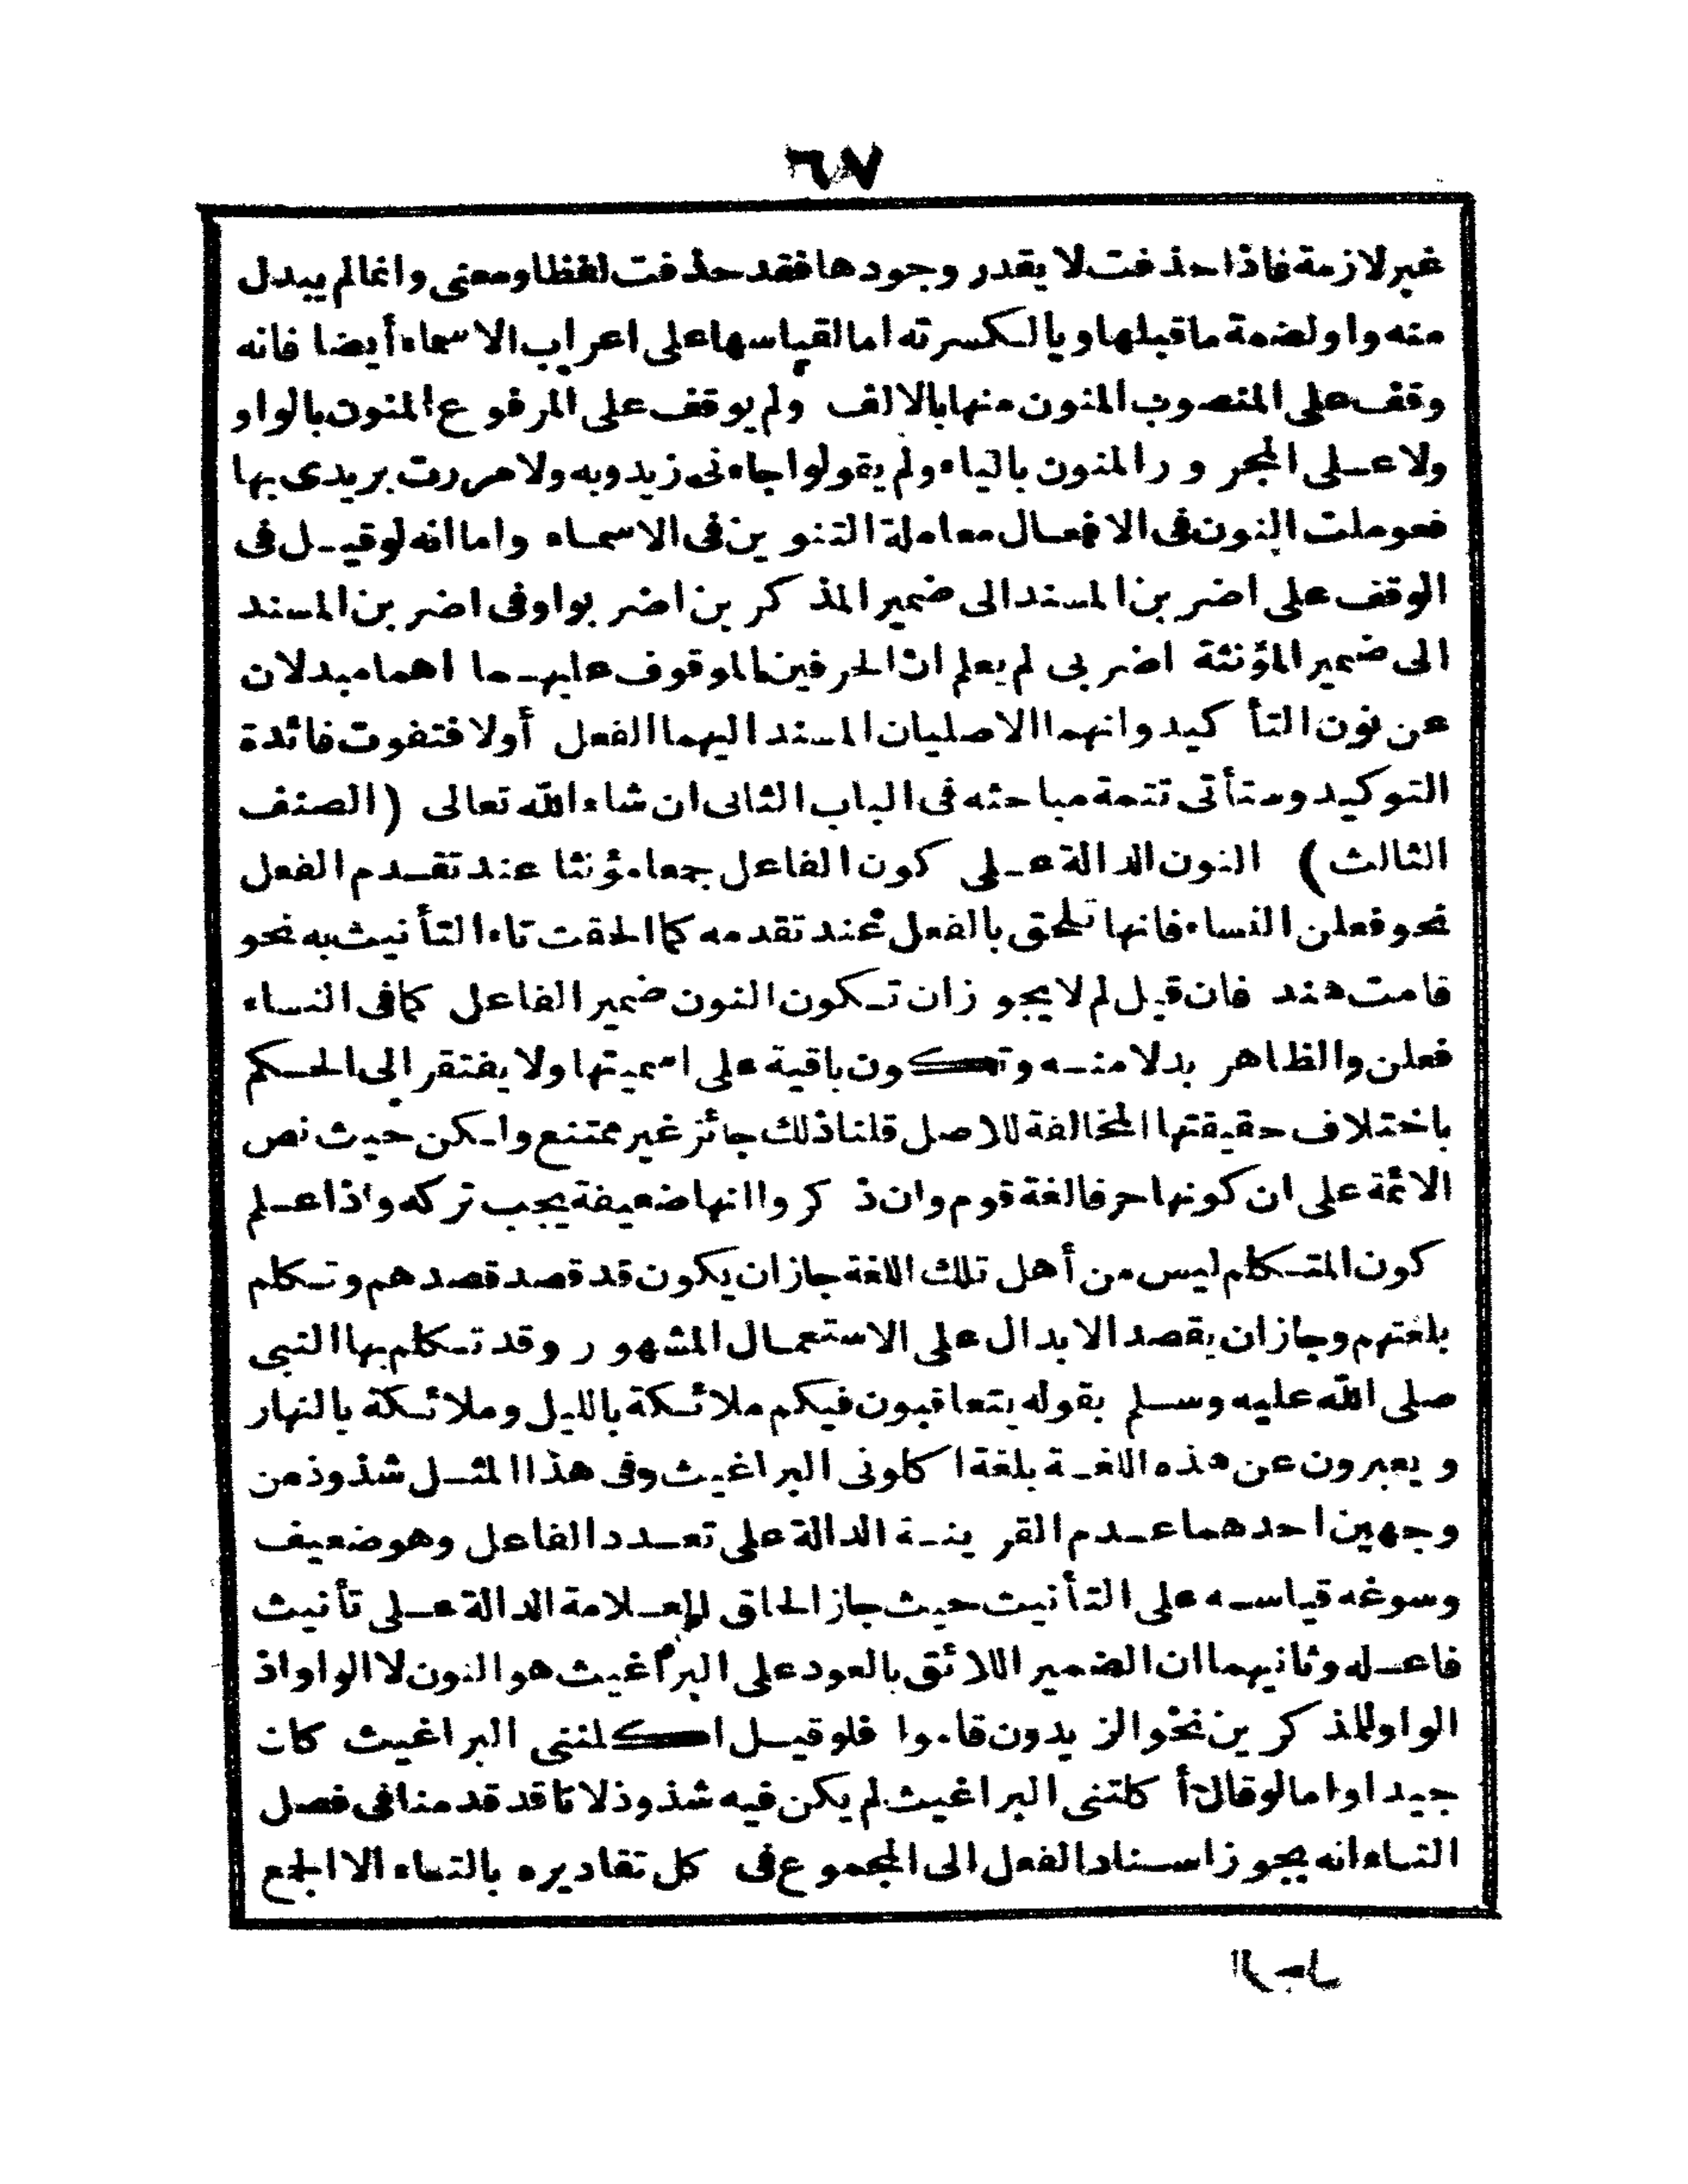 ٦٧
غير لازمة فاذا حذفت لا يقدر وجودها فقد حذفت لفظا ومعنى وانما لم يبدل
منه واو لضمة ما قبلها ويا لكسرته اما لقياسها على اعراب الاسماء أيضا فانه
وقف على المنصوب المنون منها بالالف ولم يوقف على المرفوع المنون بالواو
ولا على المجرور المنون بالياء ولم يقولوا جاءنى زيدو به ولا مررت بزيدى بها
فعوملت النون فى الافعال معاملة التنوين فى الاسماء واما انه لو قيل فى
الوقف على اضربن المسند الى ضمير المذكرين اضربوا وفى اضربن المسند
الى ضمير المؤنثة اضربى لم يعلم ان الحرفين الموقوف عليهما اهما مبدلان
عن نون التأكيد وانهما الاصليان المسند اليهما الفعل أولا فتفوت فائدة
التوكيد وستأتى تتمة مباحثه فى الباب الثانى ان شاء الله تعالى (الصنف
الثالث) النون الدالة على كون الفاعل جمعا مؤنثا عند تقدم الفعل
نحو فعلن النساء فانها تلحق بالفعل عند تقدمه كما الحقت تاء التأنيث به نحو
قامت هند فان قيل لم لا يجوز ان تكون النون ضمير الفاعل كما فى النساء
فعلن والظاهر بدلا منه وتكون باقية على اسميتها ولا يفتقر الى الحكم
باختلاف حقيقتها المخالفة للاصل قلنا ذلك جائز غير ممتنع ولكن حيث نص
الائمة على ان كونها حرفا لغة قوم وان ذكروا انها ضعيفة يجب تركه واذا علم
كون المتكلم ليس من أهل تلك اللغة جاز ان يكون قد قصد قصدهم وتكلم
بلغتهم وجاز ان يقصد الابدال على الاستعمال المشهور وقد تكلم بها النبى
صلى الله عليه وسلم بقوله يتعاقبون فيكم ملائكة بالليل وملائكة بالنهار
ويعبرون عن هذه اللغة بلغة اكلونى البراغيث وفى هذا المثل شذوذ من
وجهين احدهما عدم القرينة الدالة على تعدد الفاعل وهو ضعيف
وسوغه قياسه على التأنيث حيث جاز الحاق العلامة الدالة على تأنيث
فاعله وثانيهما ان الضمير اللائق بالعود على البراغيث هو النون لا الواو اذ
الواو للمذكرين نحو الزيدون قاموا فلو قيل اكلننى البراغيث كان
جيدا واما لو قال أكلتنى البراغيث لم يكن فيه شذوذ لانا قد قدمنا فى فصل
التاء انه يجوز اسناد الفعل الى المجموع فى كل تقاديره بالتاء الا الجمع